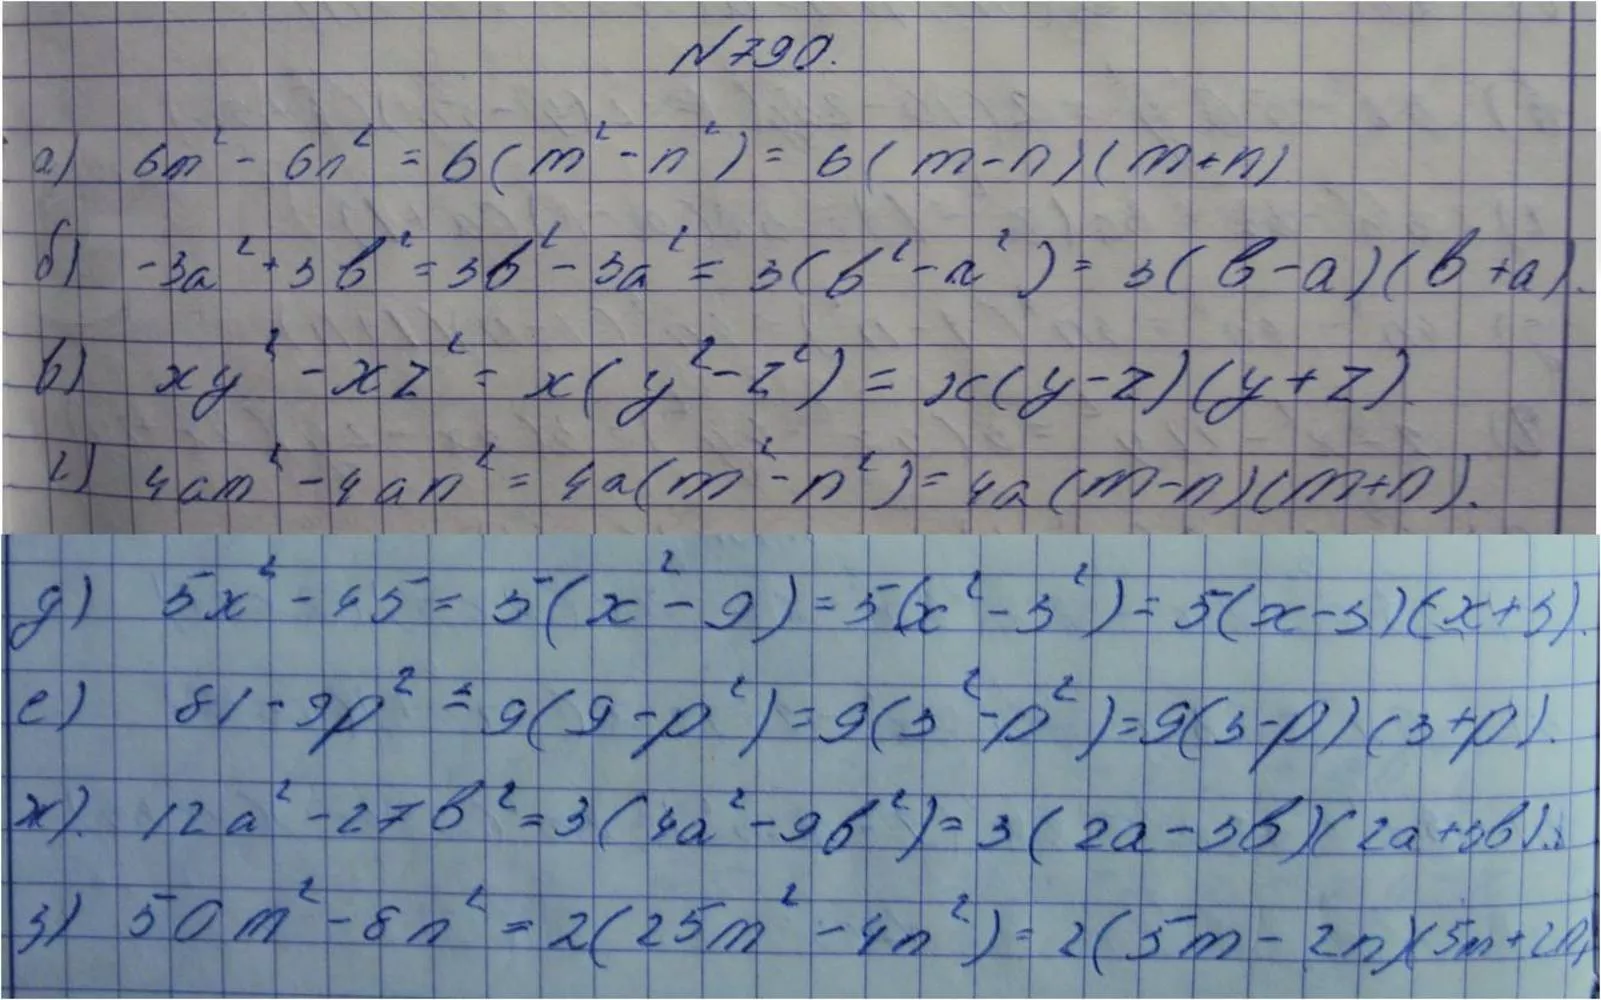 №790.
а) 6m² - 6n² = 6(m² - n²) = 6(m-n)(m+n)
б) -3a² + 3b² = 3b² - 3a² = 3(b² - a²) = 3(b-a)(b+a).
в) xy² - xz² = x(y² - z²) = x(y-z)(y+z).
г) 4am² - 4an² = 4a(m² - n²) = 4a(m-n)(m+n).
д) 5x² - 45 = 5(x² - 9) = 5(x² - 3²) = 5(x-3)(x+3).
е) 81 - 9p² = 9(9 - p²) = 9(3² - p²) = 9(3-p)(3+p).
ж). 12a² - 27b² = 3(4a² - 9b²) = 3(2a - 3b)(2a + 3b).
з) 50m² - 8n² = 2(25m² - 4n²) = 2(5m - 2n)(5m + 2n)